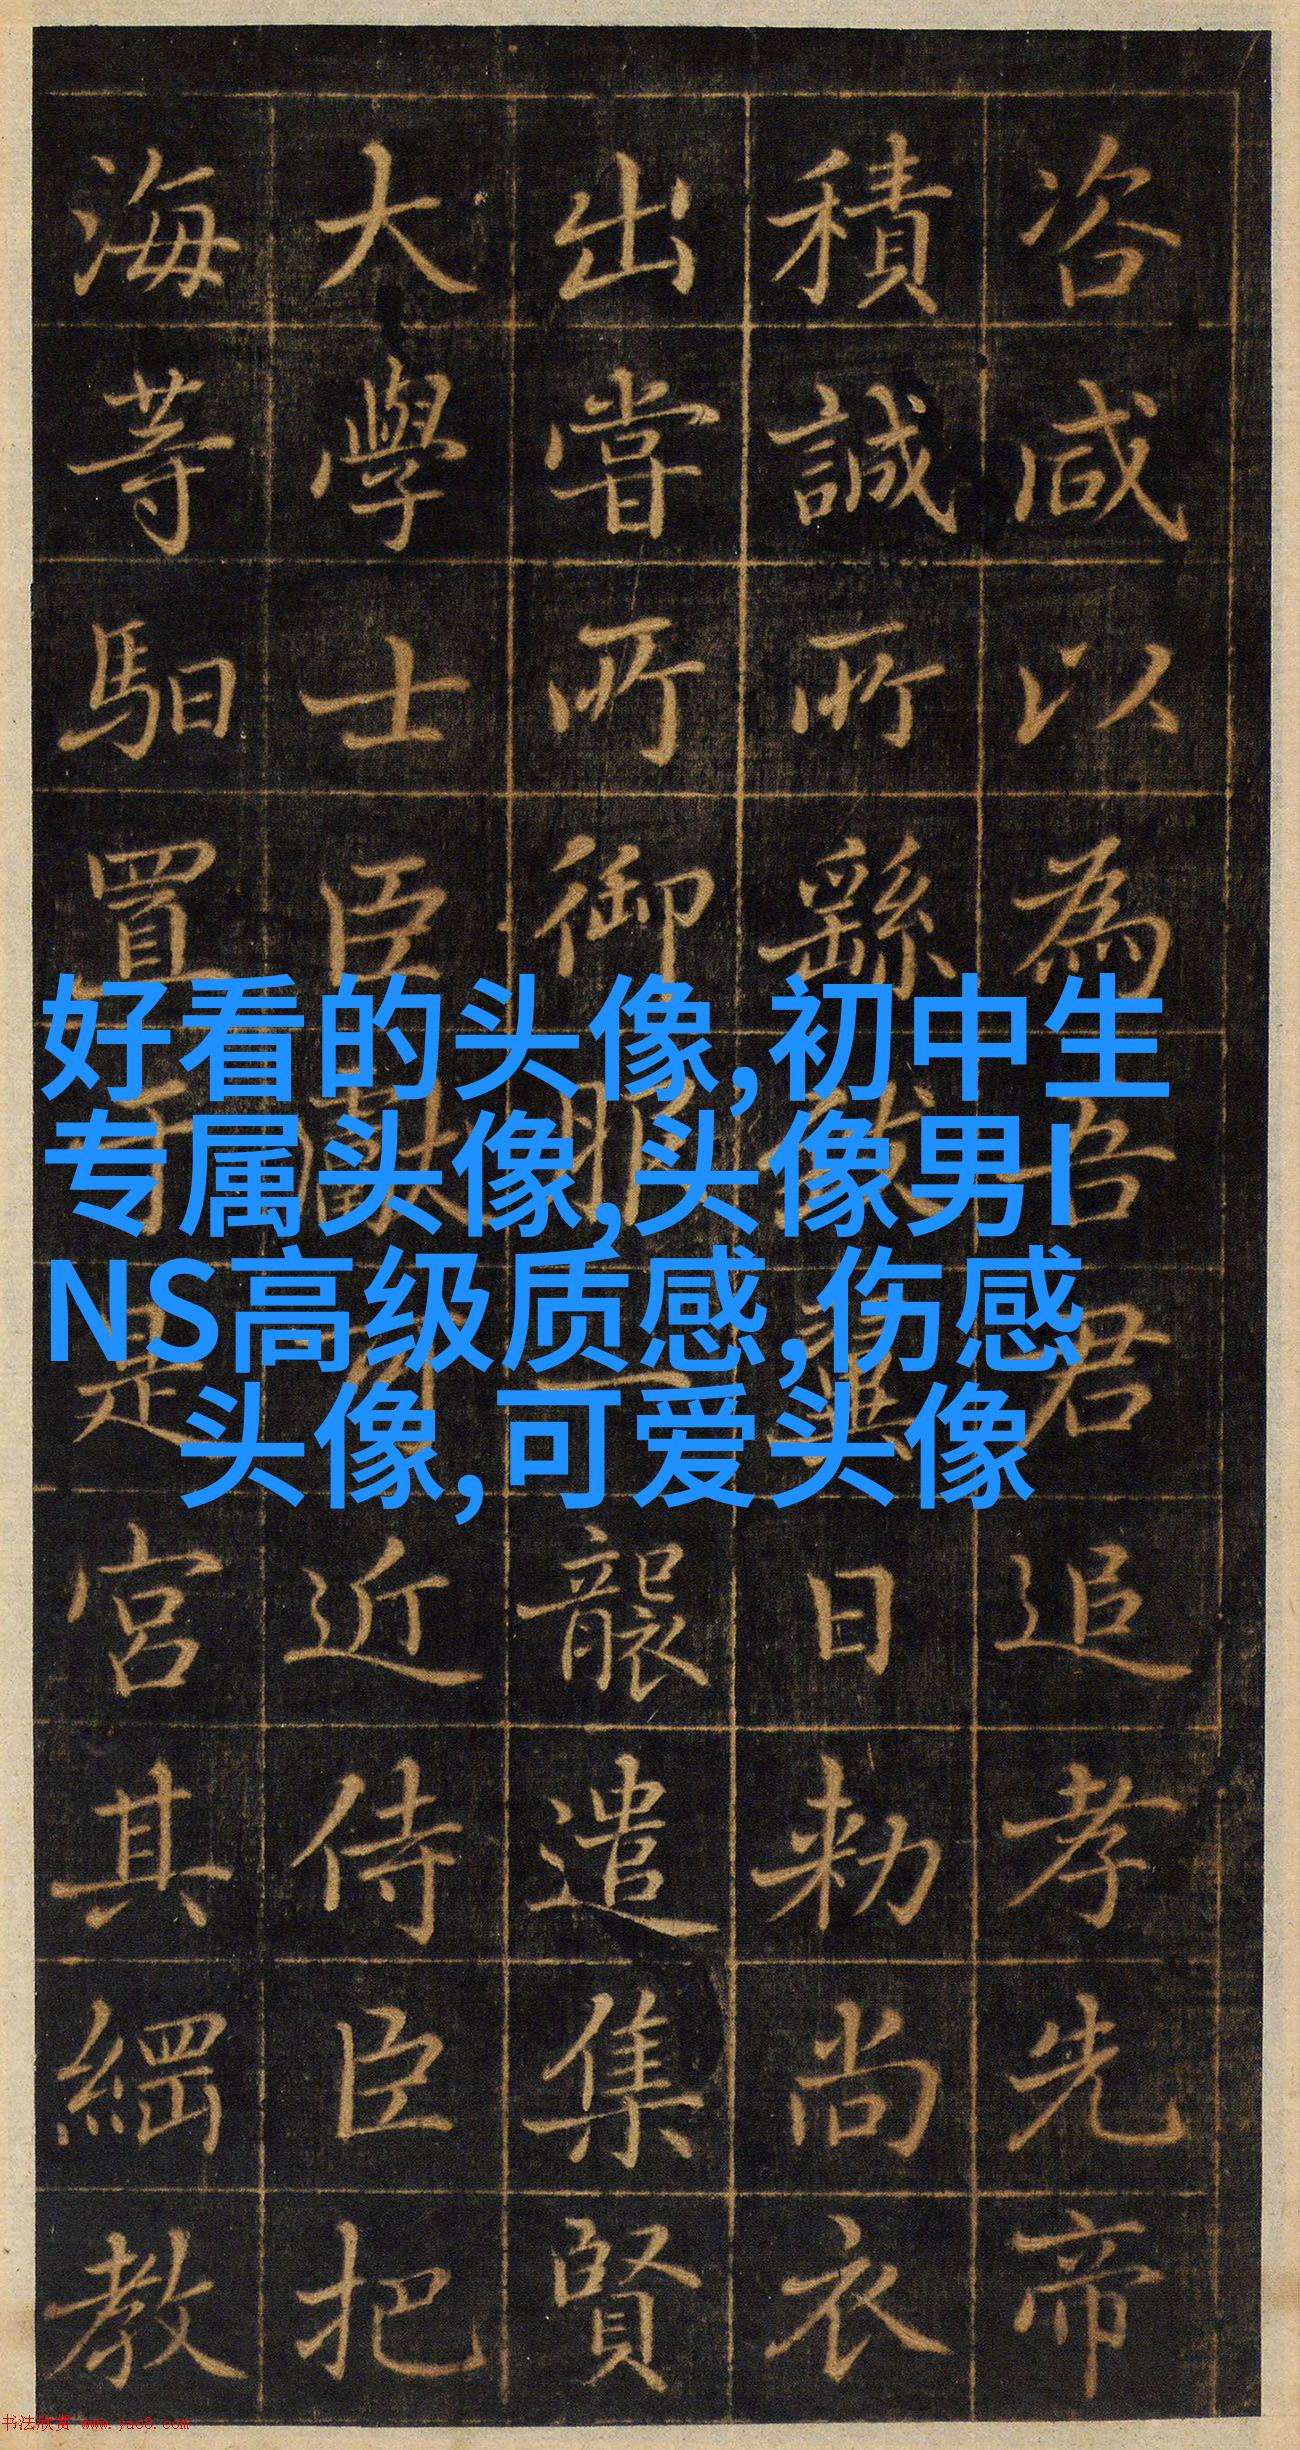 咨咸以為吾君追孝先帝
積誠所繇日勑尚衣
出嘗所御服一襲遣集賢
大學士臣近侍臣把
海等馹置是宮其綱教
好看的头像,初中生
专属头像,头像男I
NS高级质感,伤感
头像,可爱头像
书法欣赏 www.yac8.com